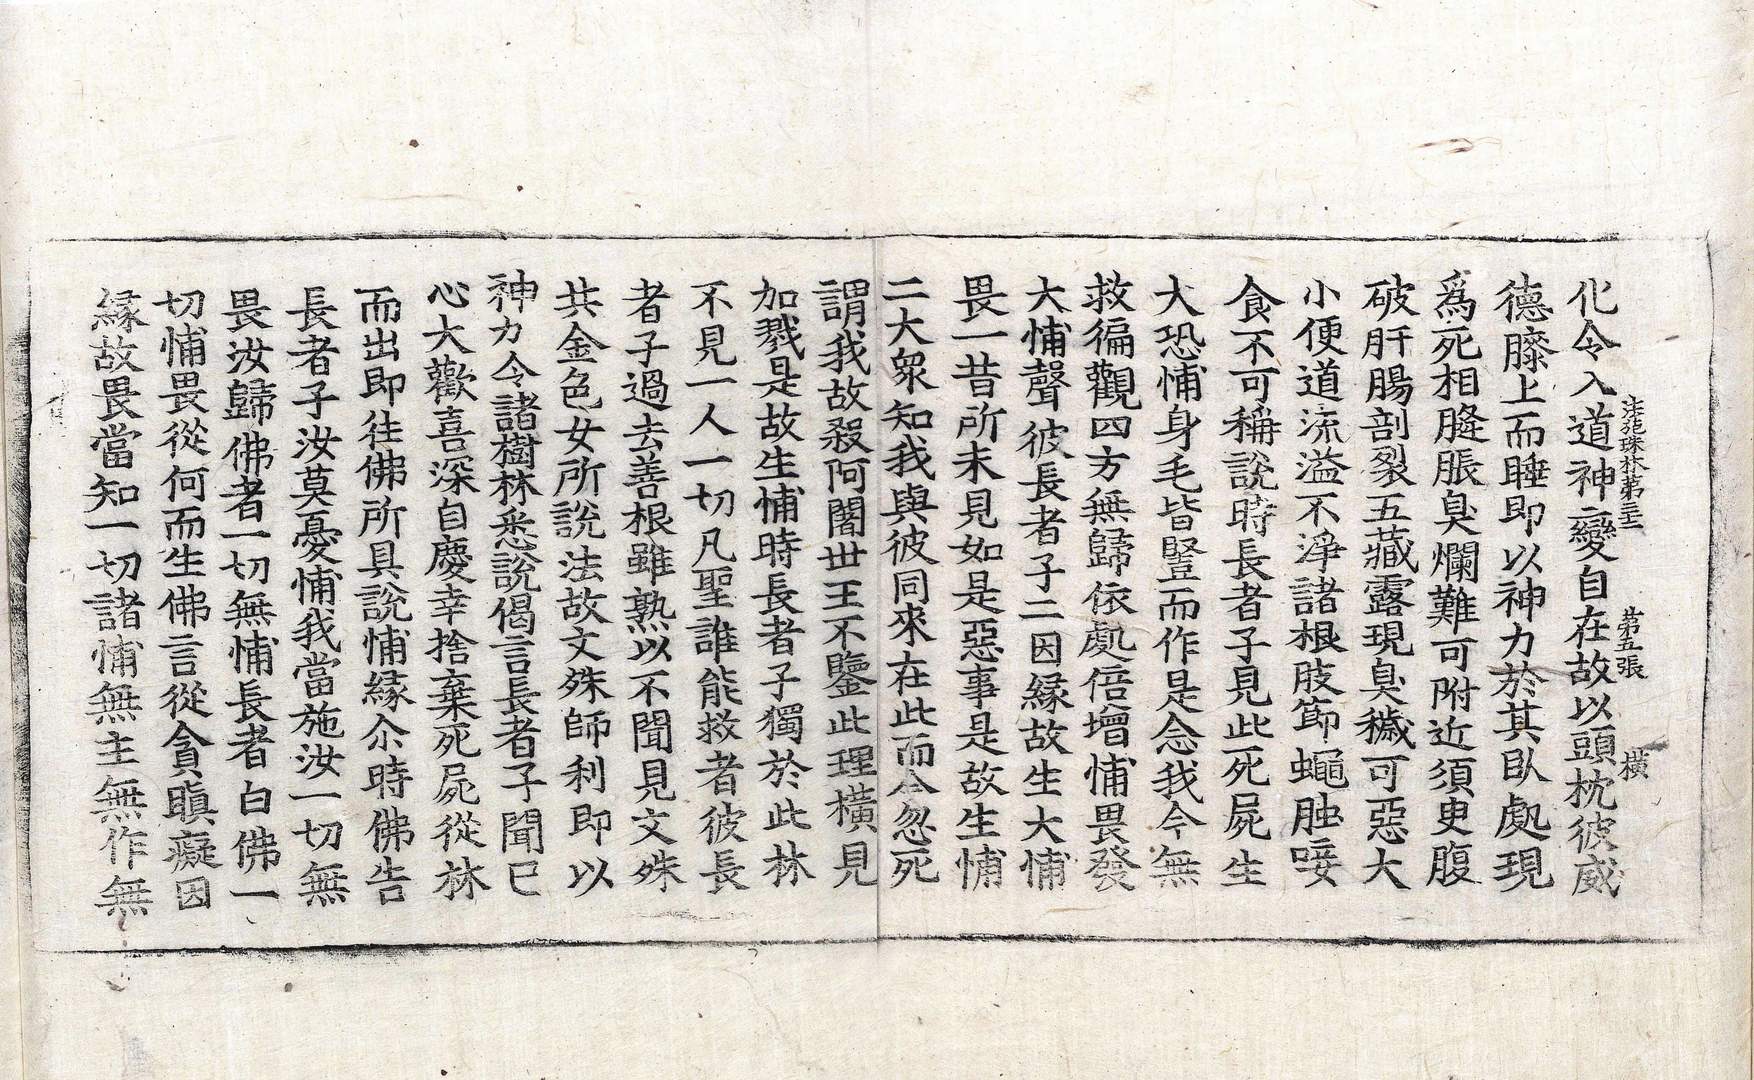 法苑珠林第三十一　第五張　橫
化令入道神變自在故以頭枕彼威
德膝上而睡即以神力於其臥處現
為死相膖脹臭爛難可附近須臾腹
破肝腸剖裂五藏露現臭穢可惡大
小便道流溢不淨諸根肢節蠅蛆唼
食不可稱說時長者子見此死屍生
大恐怖身毛皆豎而作是念我今無
救徧觀四方無歸依處倍增怖畏發
大怖聲彼長者子二因緣故生大怖
畏一昔所未見如是惡事是故生怖
二大眾知我與彼同來在此而今忽死
謂我故殺阿闍世王不鑒此理橫見
加戮是故生怖時長者子獨於此林
不見一人一切凡聖誰能救者彼長
者子過去善根雖熟以不聞見文殊
共金色女所說法故文殊師利即以
神力令諸樹林悉說偈言長者子聞已
心大歡喜深自慶幸捨棄死屍從林
而出即往佛所具說怖緣尒時佛告
長者子汝莫憂怖我當施汝一切無
畏汝歸佛者一切無怖長者白佛一
切怖畏從何而生佛言從貪瞋癡因
緣故畏當知一切諸怖無主無作無